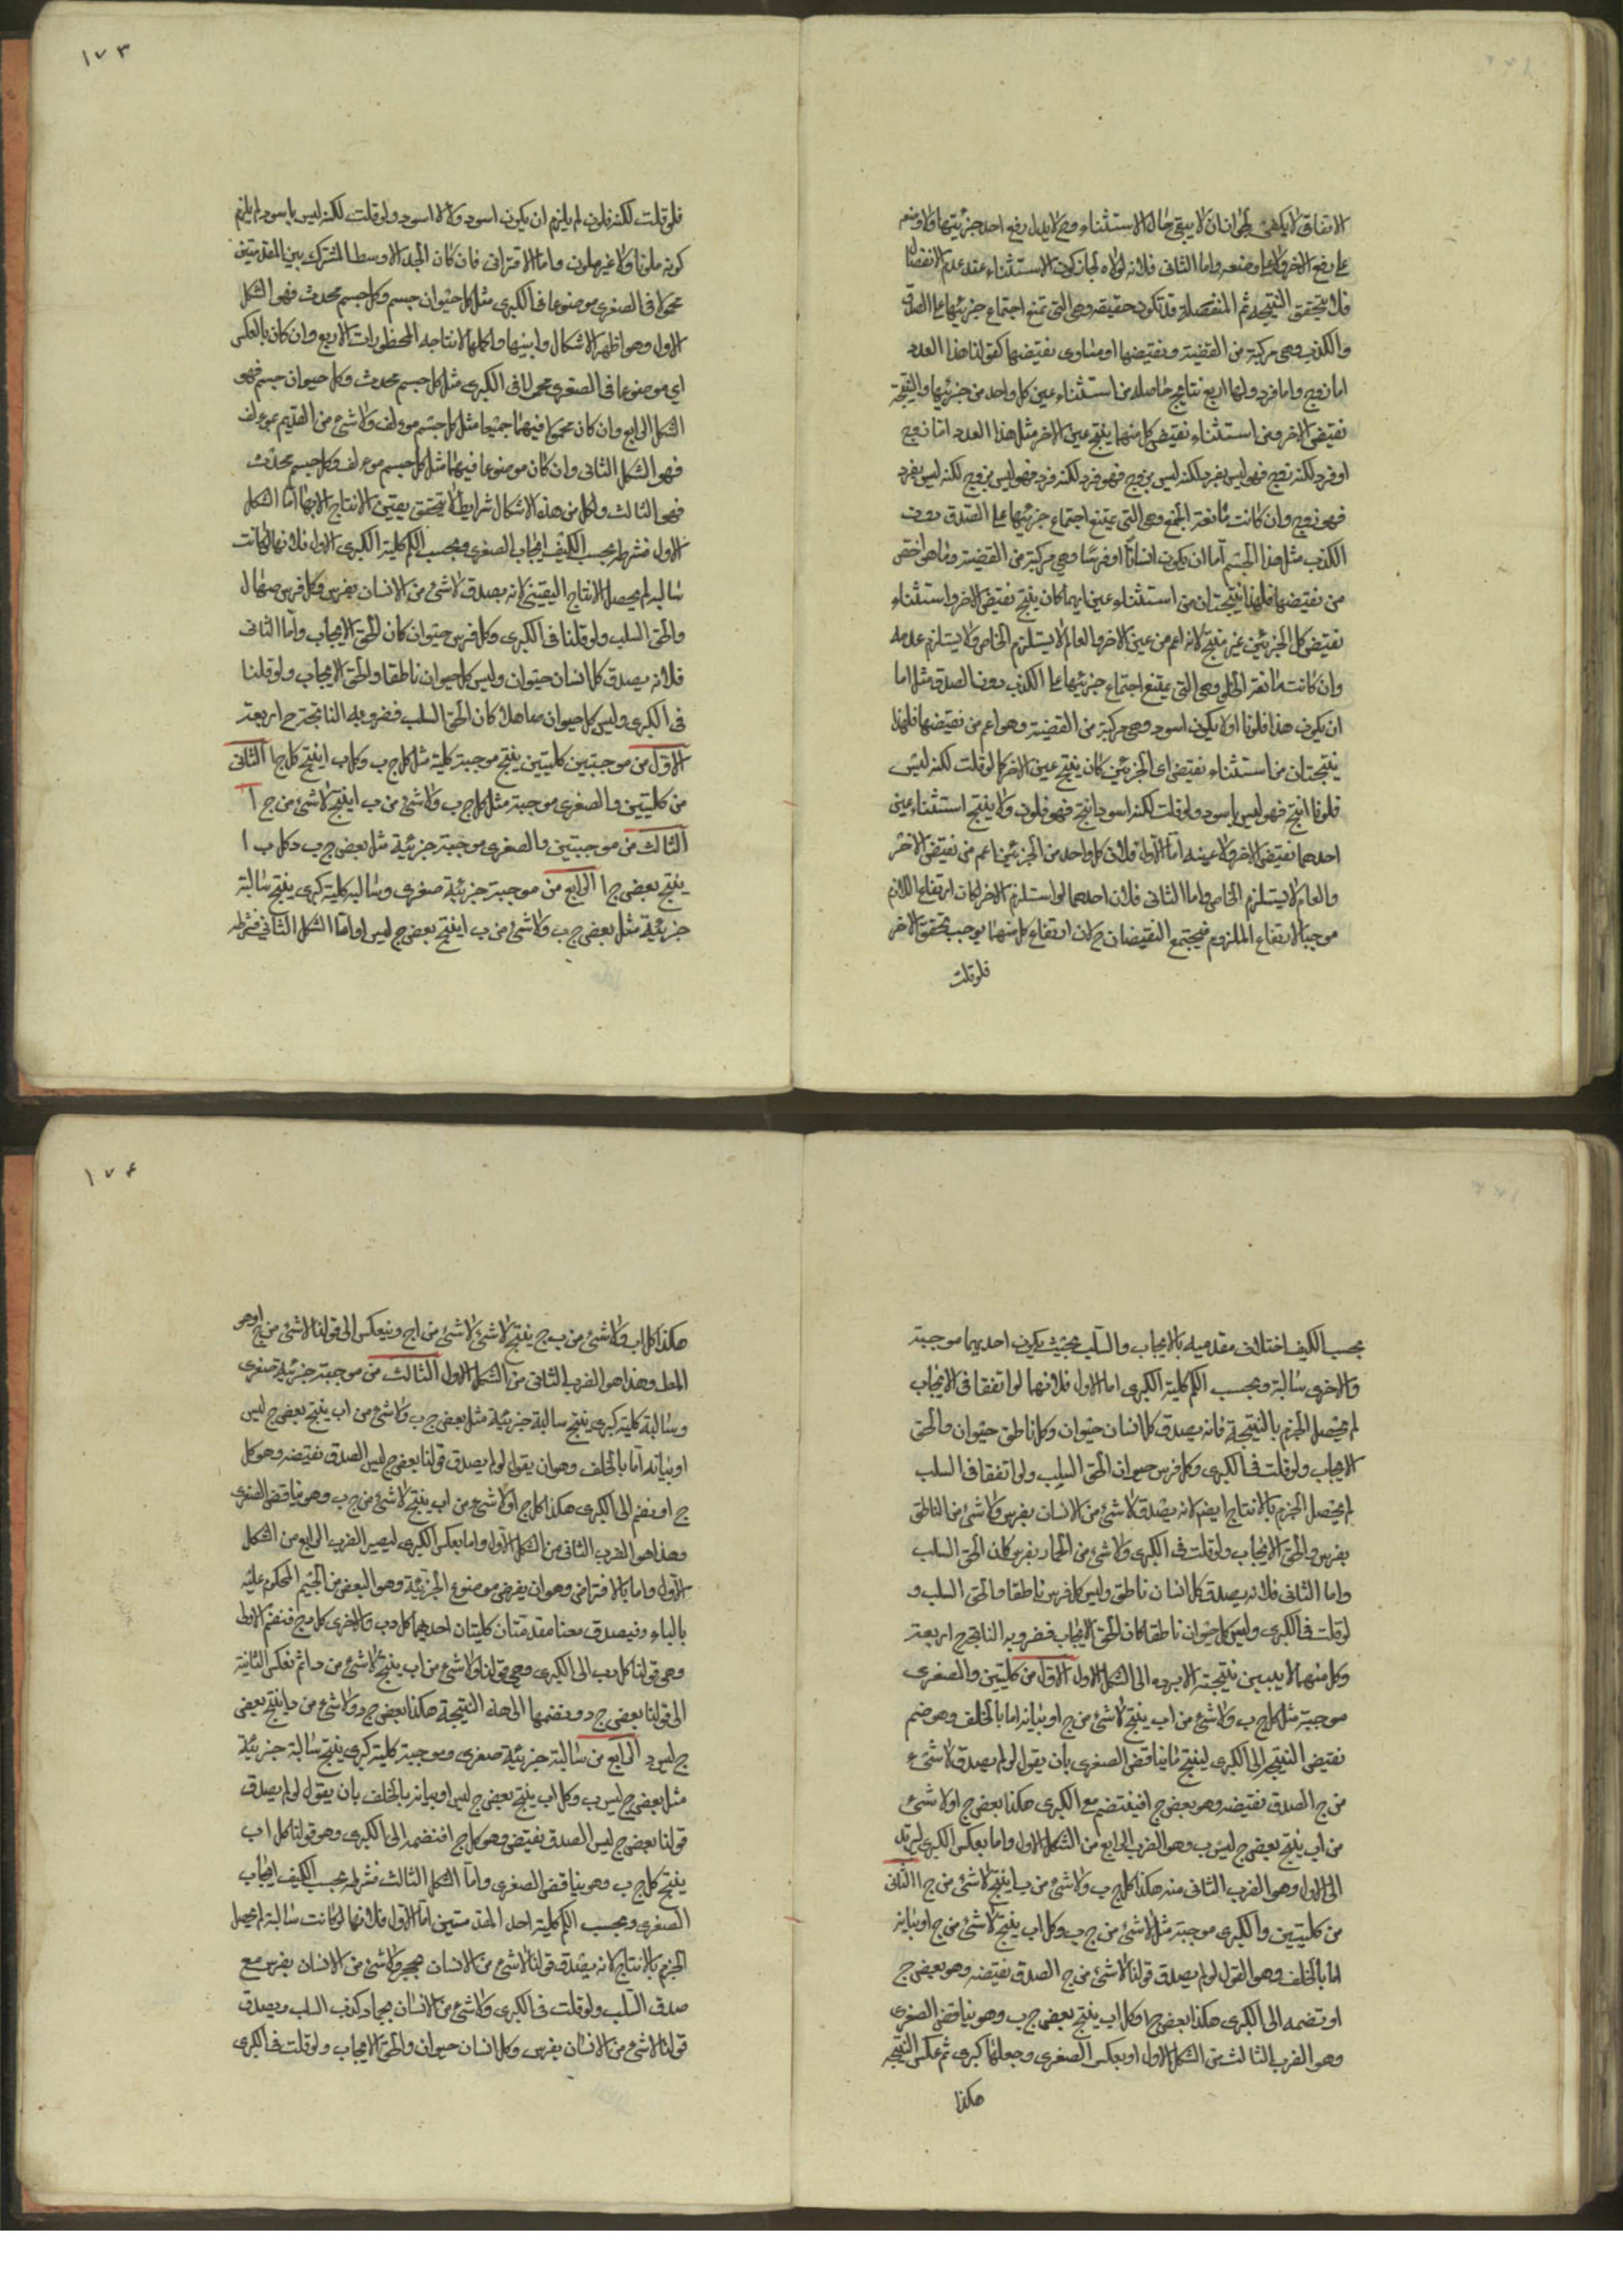 الاتفاق لا يكفي لجواز ان لا يبقى حال الاستثناء وح لا يدل رفع احد جزئيتها ولا وضعه
على رفع الاخر ولا على وضعه واما الثاني فلانه لولاه لجاز كون الاستثناء عند عدم الانفصال
فلا يتحقق النتيجة ثم المنفصلة قد تكون حقيقية وهي التي تمنع اجتماع جزئيها على الصدق
والكذب وهي مركبة من القضية ونقيضها او مساوى نقيضها كقولنا هذا العدد
اما زوج واما فرد ولها اربع نتايج حاصلة من استثناء عين كل واحد من جزئيها والنتيجة
نقيض الاخر ومن استثناء نقيض كل منهما ينتج عين الاخر مثل هذا العدد اما زوج
او فرد لكنه زوج فهو ليس بفرد لكنه ليس بزوج فهو فرد لكنه فرد فهو ليس بزوج لكنه ليس بفرد
فهو زوج وان كانت مانعة الجمع وهي التي يمتنع اجتماع جزئيها على الصدق دون
الكذب مثل هذا الجسم اما ان يكون انسانا او فرسا وهي مركبة من القضية وما هو اخص
من نقيضها فلها نتيجتان من استثناء عين ايهما كان ينتج نقيض الاخر واستثناء
نقيض كل الجزئين غير منتج لانه اعم من عين الاخر والعام لا يستلزم الخاص ولا يستلزم عدمه
وان كانت مانعة الخلو وهي التي يمتنع اجتماع جزئيها على الكذب دون الصدق مثل اما
ان يكون هذا ملونا او لا يكون اسود وهي مركبة من القضية وهو اعم من نقيضها فلهذا
ينتجتان من استثناء نقيض اى الجزئين كان ينتج عين الاخر كما لو قلت لكنه ليس
ملونا انتج فهو ليس باسود ولو قلت لكنه اسود انتج فهو ملون ولا ينتج استثناء عين
احدهما نقيض الاخر ولا عينه اما الاول فلان كل واحد من الجزئين اعم من نقيض الاخر
والعام لا يستلزم الخاص واما الثاني فلان احدهما لو استلزم الاخر لكان ارتفاع اللازم
موجبا لارتفاع الملزوم فيجتمع النقيضان ح لان ارتفاع كل منهما يوجب تحقق الاخر
فلو قلت
١٧٣
فلو قلت لكنه ملون لم يلزم ان يكون اسود ولا لا اسود ولو قلت لكنه ليس باسود لم يلزم
كونه ملونا ولا غير ملون واما الاقتراني فان كان الحد الاوسط المشترك بين المقدمتين
محمولا في الصغرى موضوعا في الكبرى مثل كل حيوان جسم وكل جسم محدث فهو الشكل
الاول وهو اظهر الاشكال وابينها واكملها لانتاجه المحظورات الاربع وان كان بالعكس
اي موضوعا في الصغرى محمولا في الكبرى مثل كل جسم محدث وكل حيوان جسم فهو
الشكل الرابع وان كان محمولا فيهما جميعا مثل كل جسم مولف ولا شئ من القديم بمولف
فهو الشكل الثاني وان كان موضوعا فيهما مثل كل جسم مولف وكل جسم محدث
فهو الثالث ولكل من هذه الاشكال شرايط لا يتحقق يقين الانتاج الا بها اما الشكل
الاول فشرطه بحسب الكيف ايجاب الصغرى وبحسب الكم كلية الكبرى الاول فلانها لو كانت
سالبة لم يحصل الانتاج اليقيني لانه يصدق لا شئ من الانسان بفرس وكل فرس صهال
والحق السلب ولو قلنا في الكبرى وكل فرس حيوان كان الحق الايجاب واما الثاني
فلانه يصدق كل انسان حيوان وليس كل حيوان ناطقا والحق الايجاب ولو قلنا
في الكبرى وليس كل حيوان صاهلا كان الحق السلب فضروبه الناتجة ح اربعة
الاول من موجبتين كليتين ينتج موجبة كلية مثل كل ج ب وكل ب ا ينتج كل ج ا الثاني
من كليتين والصغرى موجبة مثل كل ج ب ولا شئ من ب ا ينتج لا شئ من ج ا
الثالث من موجبتين والصغرى موجبة جزئية مثل بعض ج ب وكل ب ا
ينتج بعض ج ا الرابع من موجبة جزئية صغرى وسالبة كلية كبرى ينتج سالبة
جزئية مثل بعض ج ب ولا شئ من ب ا ينتج بعض ج ليس ا واما الشكل الثاني فشرطه
بحسب الكيف اختلاف مقدميه بالايجاب والسلب بحيث يكون احديهما موجبة
والاخرى سالبة وبحسب الكم كلية الكبرى اما الاول فلانهما لو اتفقا في الايجاب
لم يحصل الجزم بالنتيجة فانه يصدق كل انسان حيوان وكل ناطق حيوان والحق
الايجاب ولو قلت في الكبرى وكل فرس حيوان الحق السلب ولو اتفقا في السلب
لم يحصل الجزم بالانتاج ايضم لانه يصدق لا شئ من الانسان بفرس ولا شئ من الناطق
بفرس والحق الايجاب ولو قلت في الكبرى ولا شئ من الحمار بفرس كان الحق السلب
واما الثاني فلانه يصدق كل انسان ناطق وليس كل فرس ناطقا والحق السلب و
لو قلت في الكبرى وليس كل حيوان ناطقا كان الحق الايجاب فضروبه الناتجة ح اربعة
وكل منها لا يبين نتيجته الا برده الى الشكل الاول الاول من كليتين والصغرى
موجبة مثل كل ج ب ولا شئ من ا ب ينتج لا شئ من ج ا وبيانه اما بالخلف وهو ضم
نقيض النتيجة الى الكبرى لينتج ما يناقض الصغرى بان يقول لو لم يصدق لا شئ
من ج ا لصدق نقيضه وهو بعض ج ا فيفتضم مع الكبرى هكذا بعض ج ا ولا شئ
من ا ب ينتج بعض ج ليس ب وهو الضرب الرابع من الشكل الاول واما بعكس الكبرى ليرتد
الى الاول وهو الضرب الثاني منه هكذا كل ج ب ولا شئ من ب ا ينتج لا شئ من ج ا الثاني
من كليتين والكبرى موجبة مثل لا شئ من ج ب وكل ا ب ينتج لا شئ من ج ا وبيانه
اما بالخلف وهو القول لو لم يصدق قولنا لا شئ من ج ا لصدق نقيضه وهو بعض ج
ا ونضمه الى الكبرى هكذا بعض ج ا وكل ا ب ينتج بعض ج ب وهو يناقض الصغرى
وهو الضرب الثالث من الشكل الاول او بعكس الصغرى وجعلها كبرى ثم عكس النتيجة
هكذا
١٧٤
هكذا كل ا ب ولا شئ من ب ج ينتج لا شئ لا شئ من ا ج وينعكس الى قولنا لا شئ من ج ا وهو
المط وهذا هو الضرب الثاني من الشكل الاول الثالث من موجبة جزئية صغرى
وسالبة كلية كبرى ينتج سالبة جزئية مثل بعض ج ب ولا شئ من ا ب ينتج بعض ج ليس
ا وبيانه اما بالخلف وهو ان يقول لو لم يصدق قولنا بعض ج ليس ا لصدق نقيضه وهو كل
ج ا ونضم الى الكبرى هكذا كل ج ا ولا شئ من ا ب ينتج لا شئ من ج ب وهو يناقض الصغرى
وهذا هو الضرب الثاني من الشكل الاول واما بعكس الكبرى ليصير الضرب الرابع من الشكل
الاول واما بالافتراض وهو ان يفرض موضوع الجزئية وهو البعض من الجيم المحكوم عليه
بالباء د فيصدق معنا مقدمتان كليتان احديهما كل د ب والاخرى كل د ج فنضم الاولى
وهي قولنا كل د ب الى الكبرى وهي قولنا ولا شئ من ا ب ينتج لا شئ من د ا ثم نعكس الثانية
الى قولنا بعض ج د ونضمها الى هذه النتيجة هكذا بعض ج د ولا شئ من د ا ينتج بعض
ج ليس ا الرابع من سالبة جزئية صغرى وموجبة كلية كبرى ينتج سالبة جزئية
مثل بعض ج ليس ب وكل ا ب ينتج بعض ج ليس ا وبيانه بالخلف بان يقول لو لم يصدق
قولنا بعض ج ليس ا لصدق نقيضه وهو كل ج ا فنضمه الى الكبرى وهو قولنا كل ا ب
ينتج كل ج ب وهو يناقض الصغرى واما الشكل الثالث فشرطه بحسب الكيف ايجاب
الصغرى وبحسب الكم كلية احد المقدمتين اما الاول فلانها لو كانت سالبة لم يحصل
الجزم بالانتاج لانه يصدق قولنا لا شئ من الانسان بحجر ولا شئ من الانسان بفرس مع
صدق السلب ولو قلت في الكبرى ولا شئ من الانسان بجماد كذب السلب ويصدق
قولنا لا شئ من الانسان بفرس وكل انسان حيوان والحق الايجاب ولو قلت في الكبرى